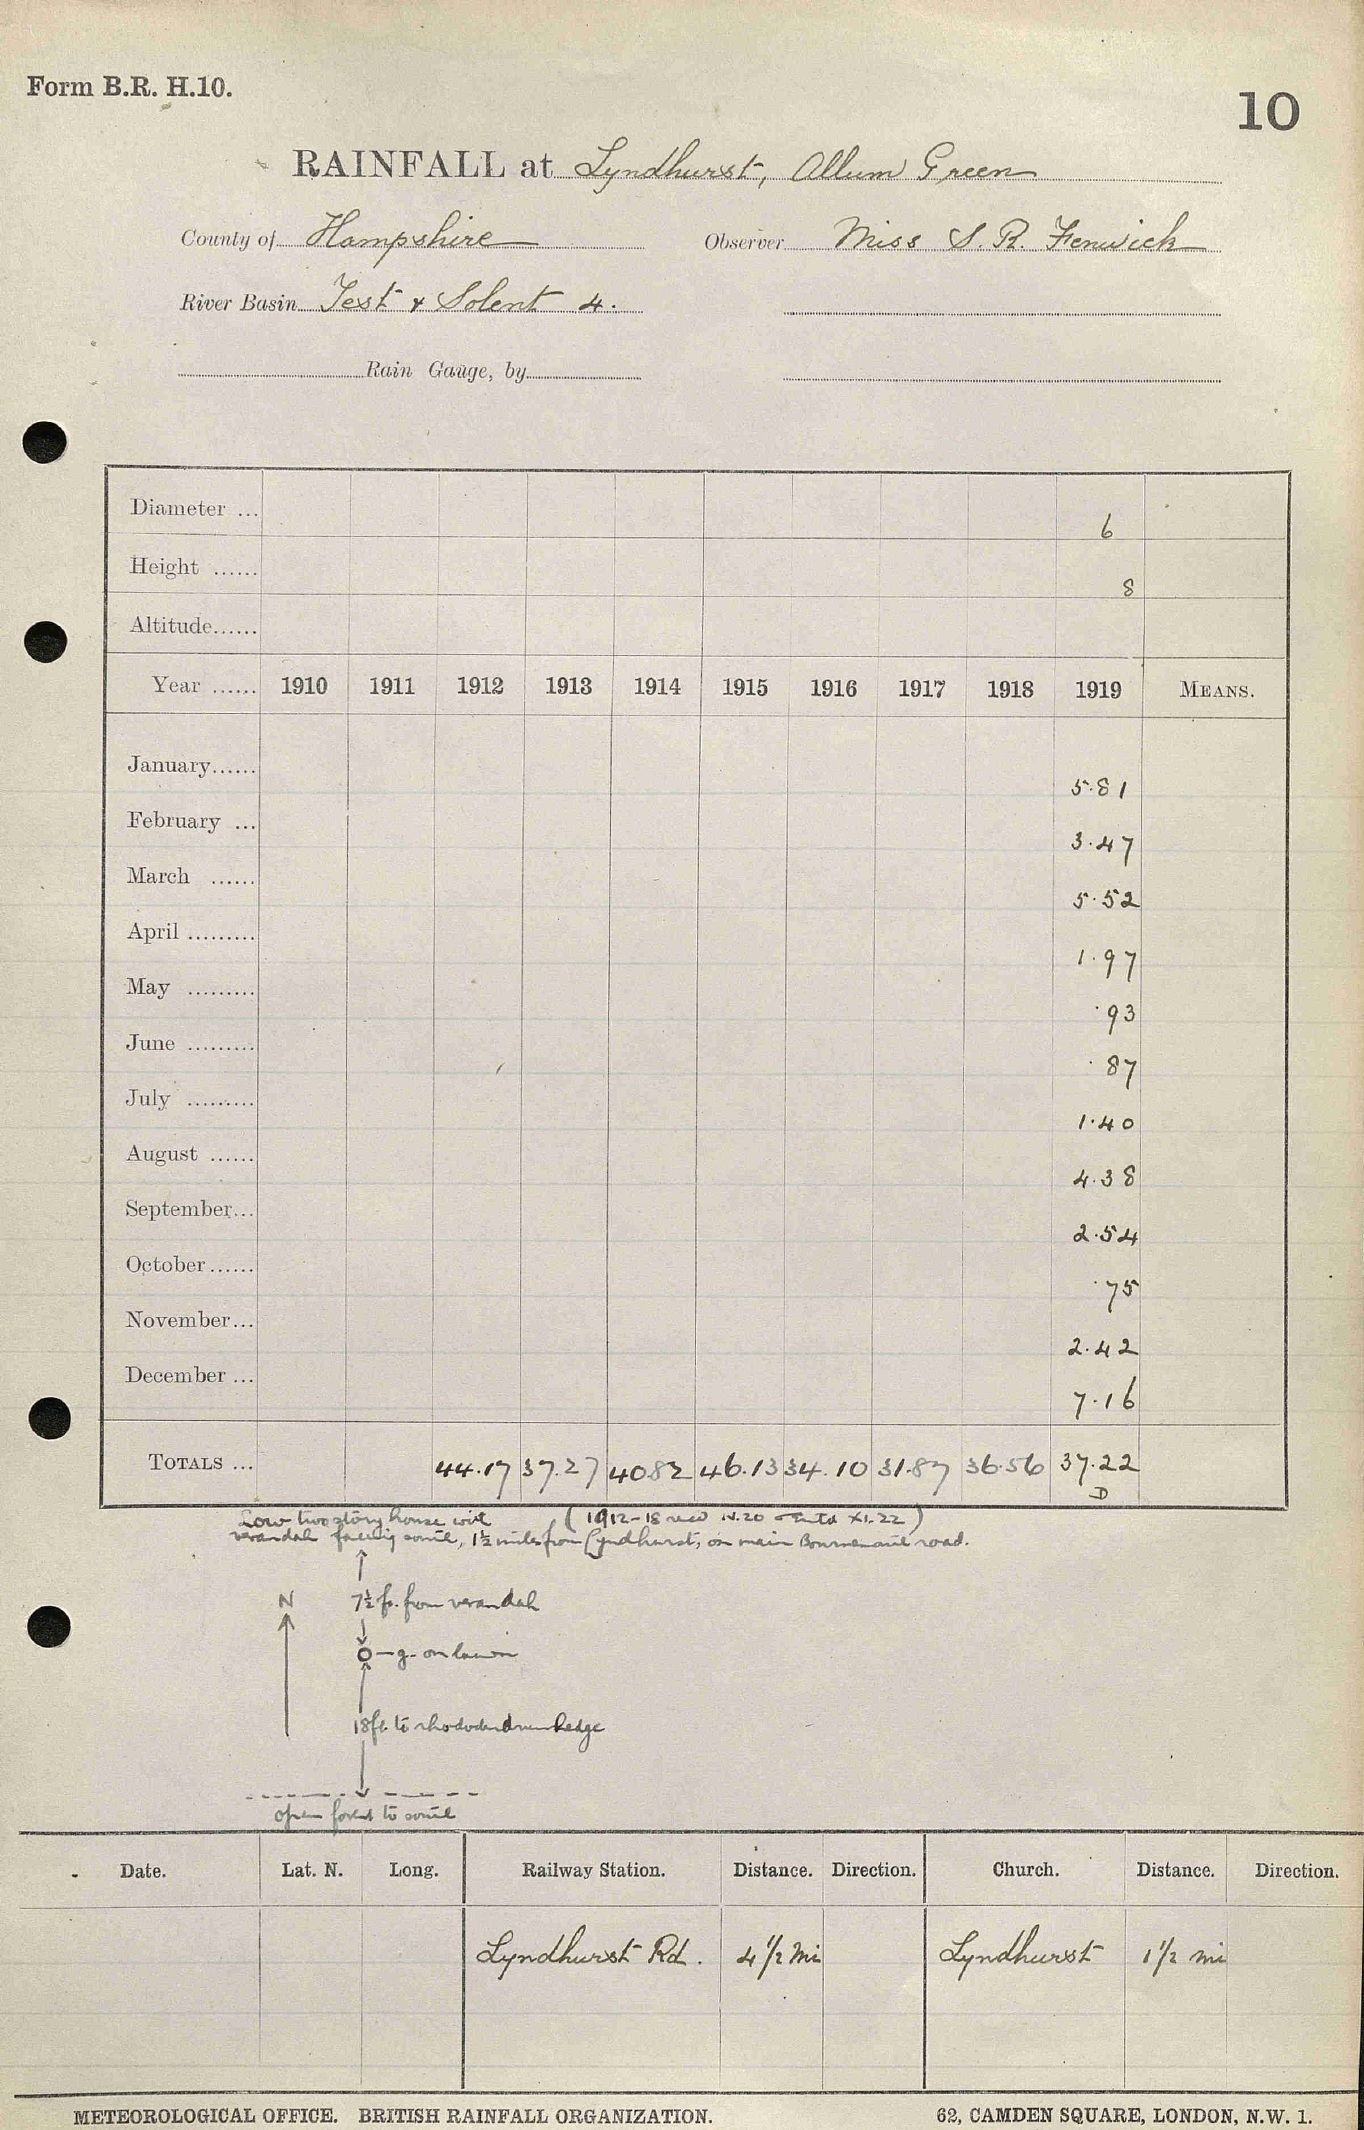 Form B.R. H.10.
10
RAINFALL at Lyndhurst, Allum Green
County of Hampshire Observer Miss S. R. Fenwick
River Basin Test & Solent 4.
Rain Gauge, by
Diameter ... 6
Height ...... 8
Altitude......
Year ...... 1910 1911 1912 1913 1914 1915 1916 1917 1918 1919 MEANS.
January...... 5.81
February ... 3.47
March ...... 5.52
April ......... 1.97
May ......... .93
June ......... .87
July ......... 1.40
August ...... 4.38
September... 2.54
October...... .75
November... 2.42
December ... 7.16
TOTALS ... 44.17 37.27 40.82 46.13 34.10 31.87 36.56 37.22
D
Low two story house with (1912-18 recd IV.20 XI.22)
verandah facing south, 1½ miles from Lyndhurst, on main Bournemouth road.
N 7½ ft. from verandah
O - g. on lawn
18 ft. to rhododendron hedge
open forest to south
Date. Lat. N. Long. Railway Station. Distance. Direction. Church. Distance. Direction.
Lyndhurst Rd. 4 1/2 mi Lyndhurst 1 1/2 mi
METEOROLOGICAL OFFICE. BRITISH RAINFALL ORGANIZATION. 62, CAMDEN SQUARE, LONDON, N.W. 1.